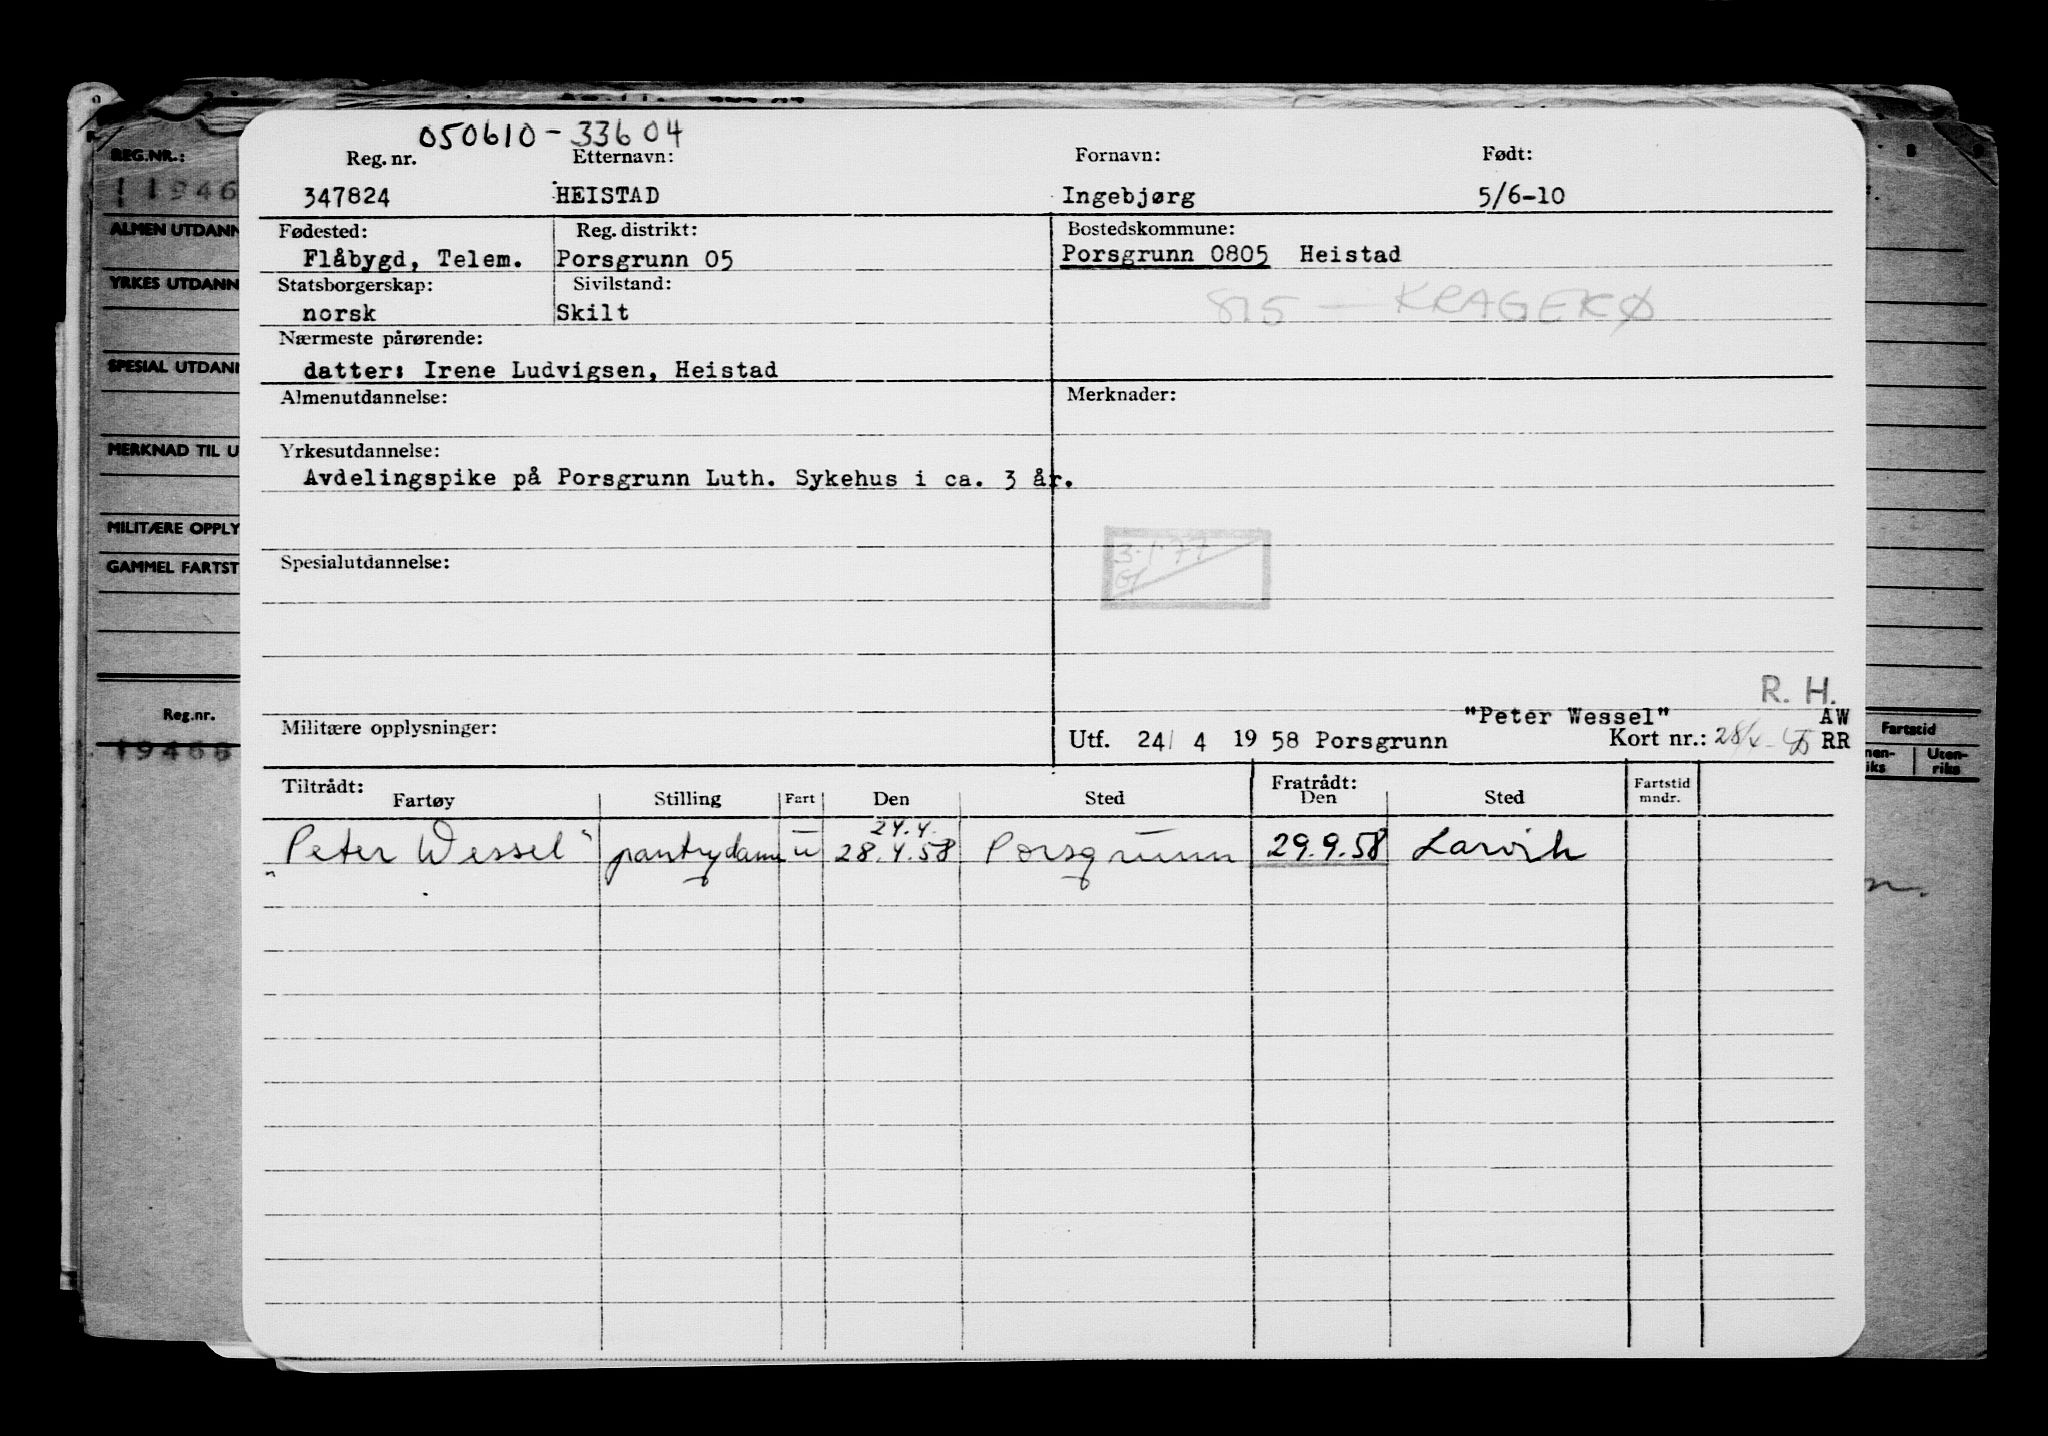 050610-33604
Reg. nr. Etternavn: Fornavn: Født:
347824 HEISTAD Ingebjørg 5/6-10
Fødested: Reg. distrikt: Bostedskommune:
Flåbygd, Telem. Porsgrunn 05 Porsgrunn 0805 Heistad
Statsborgerskap: Sivilstand:
norsk Skilt
815 - KRAGERØ
Nærmeste pårørende:
datter: Irene Ludvigsen, Heistad
Almenutdannelse: Merknader:
Yrkesutdannelse:
Avdelingspike på Porsgrunn Luth. Sykehus i ca. 3 år.
3.1.77
Spesialutdannelse:
R. H.
"Peter Wessel" AW
Militære opplysninger: Utf. 24/ 4 19 58 Porsgrunn Kort nr.: RR
Tiltrådt: Fratrådt: Fartstid
Fartøy Stilling Fart Den Sted Den Sted mndr.
24.4.
"Peter Wessel" pantrydame u 28.4.58 Porsgrunn 29.9.58 Larvik
REG.NR.:
11946
ALMEN UTDANN
YRKES UTDANN
SPESIAL UTDANN
MERKNAD TIL U
MILITÆRE OPPLY
GAMMEL FARTST
Reg.nr.
19466
Fartstid
nen-
iks
Uten-
riks